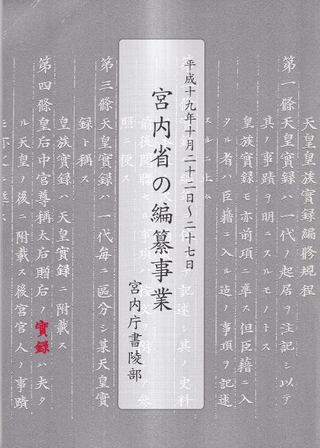 天皇皇族實録編修規程
第一條天皇實録ハ一代ノ起居ヲ注記シ以テ
其ノ事蹟ヲ明ニスルモノトス
皇族實録モ亦前項ニ準ス但臣籍ニ入
タル者ハ臣籍ニ入ル迄ノ事項ヲ記述
平成十九年十月二十二日～二十七日
宮内省の編纂事業
宮内庁書陵部
照ニ便ス
第三條天皇實録ハ一代毎ニ區分シ某天皇實
録ト稱ス
皇族實録ハ天皇實録ニ附載ス
第四條皇后中宮尊稱太后贈后ノ實録ハ夫タ
ル天皇ノ後ニ附載ス後宮官人ノ事蹟